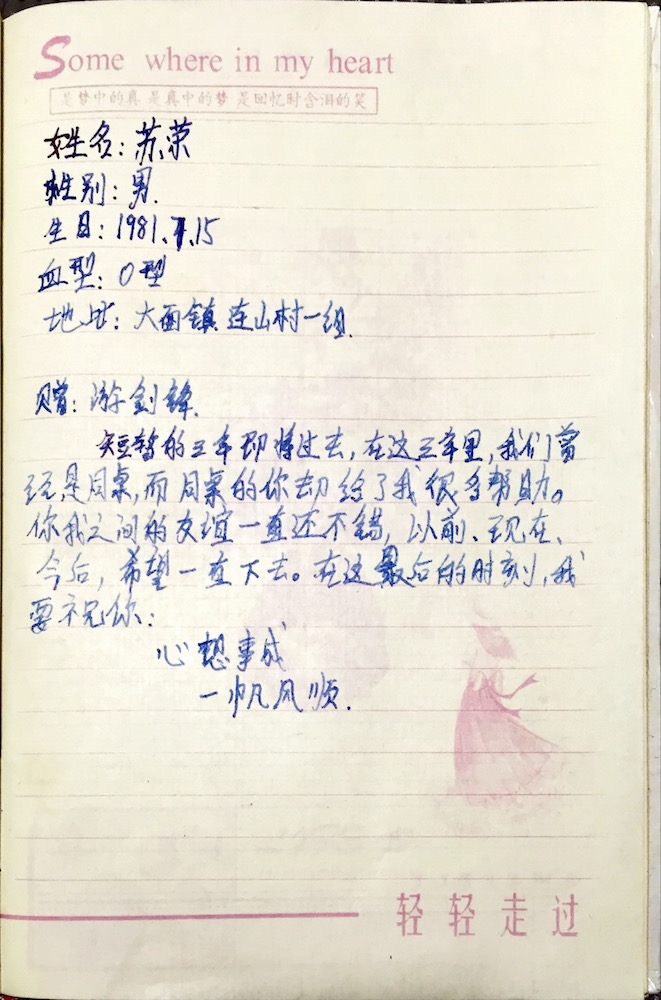 Some where in my heart
是梦中的真 是真中的梦 是回忆时含泪的笑
姓名：苏荣
性别：男.
生日：1981.7.15
血型：O型
地址：大面镇连山村一组.
赠：游剑锋.
短暂的三年即将过去，在这三年里，我们曾
经是同桌，而同桌的你却给了我很多帮助。
你我之间的友谊一直还不错，以前、现在、
今后，希望一直下去。在这最后的时刻，我
要祝你：
心想事成
一帆风顺.
轻轻走过